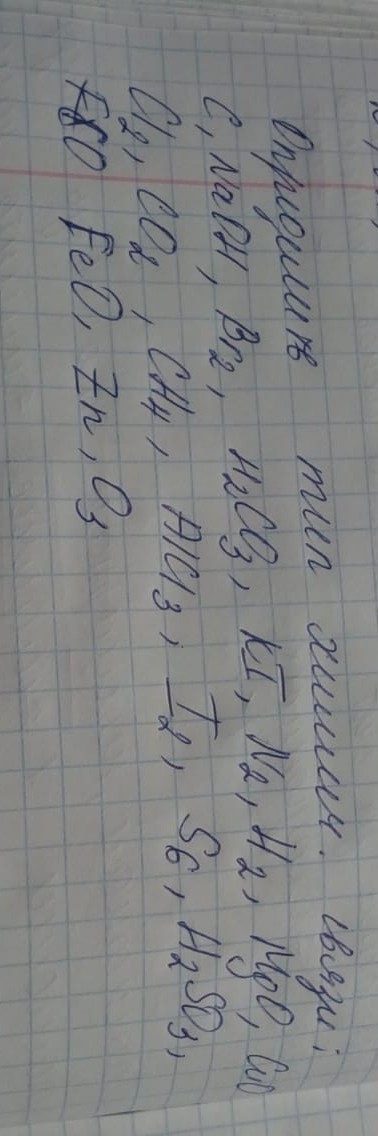 Определить тип химич. связи:
C, NaOH, Br₂, H₂CO₃, KI, N₂, H₂, MgO, CuO
Cl₂, CO₂, CH₄, AlCl₃, I₂, S₆, H₂SO₃,
FeO, Zn, O₃